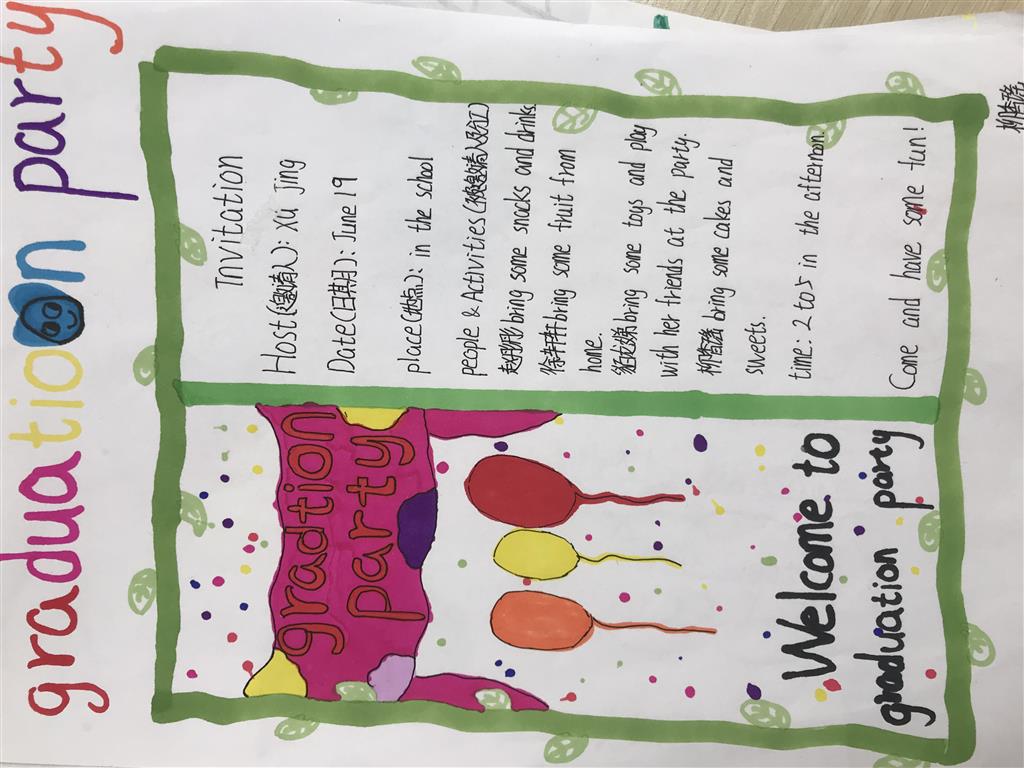 graduation party
gradtion
party
Welcome to
graduation party
Invitation
Host(邀请人): Xu Jing
Date(日期): June 19
place(地点): in the school
people & Activities(被邀请人及分工)
bring some snacks and drinks.
bring some fruit from
home.
bring some toys and play
with her friends at the party.
bring some cakes and
sweets.
time: 2 to 5 in the afternoon.
Come and have some fun!